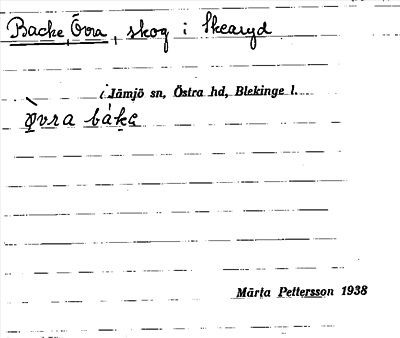 Backe, Övra, skog i Skearyd
i Jämjö sn, Östra hd, Blekinge l.
ǫ̀vra bákɛ
Märta Pettersson 1938